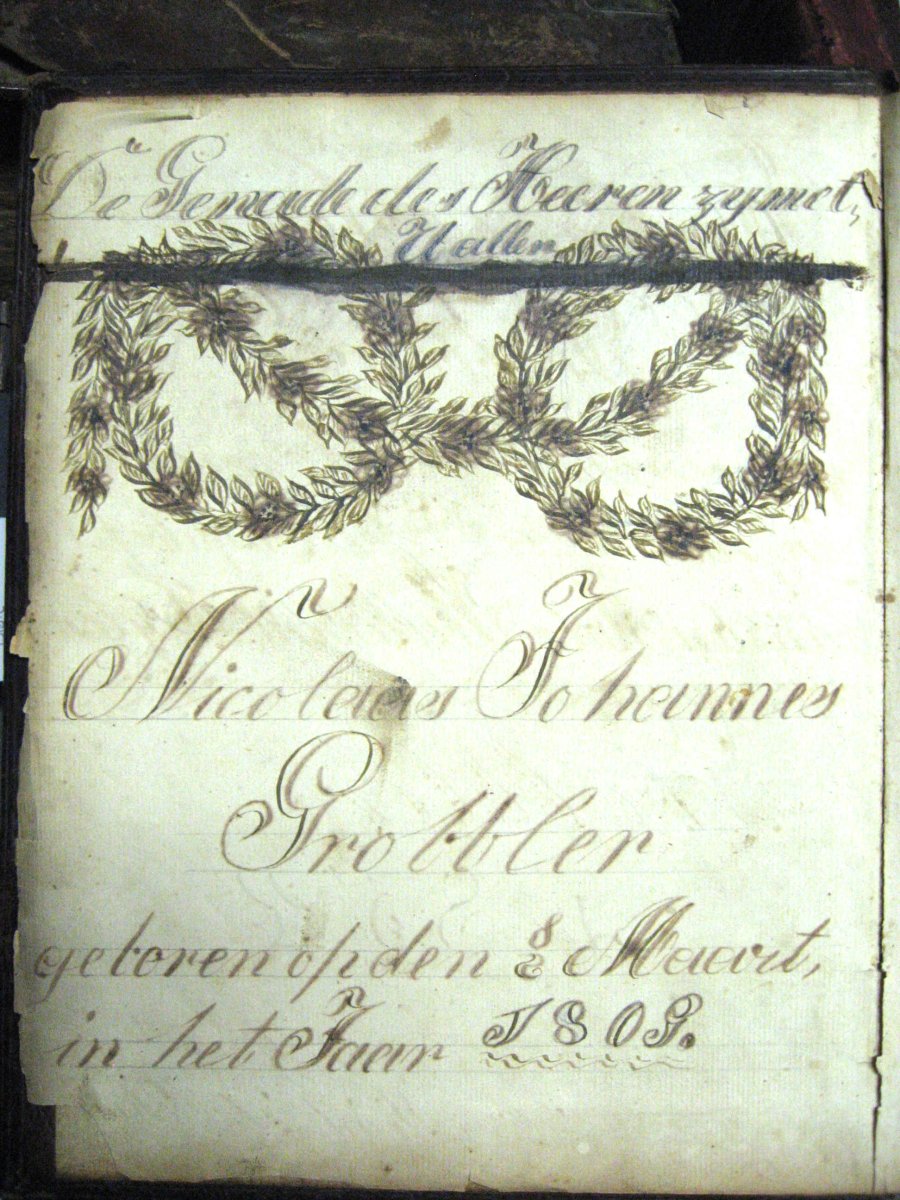 De Genade des Heeren zy met,
U allen
Nicolaas Johannes
Grobbler
geboren op den 8 Maart,
in het Jaar 1809.